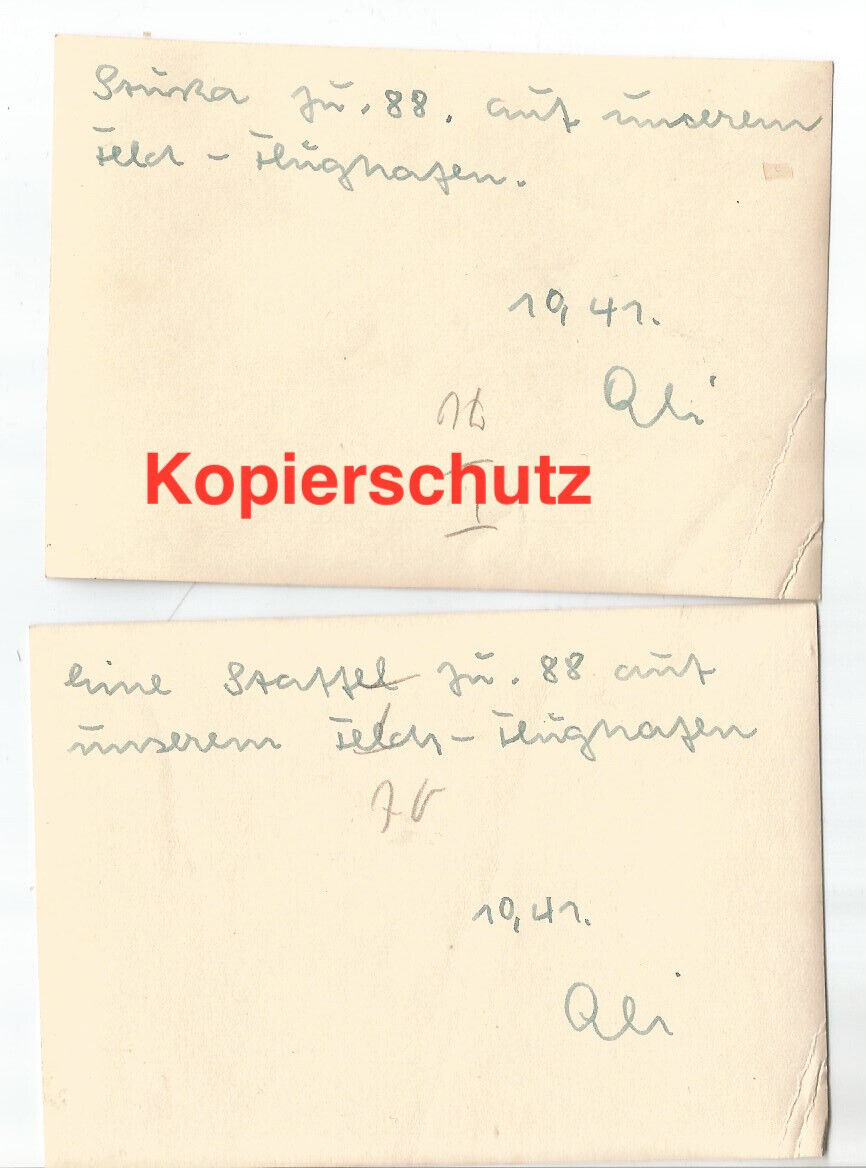 Stuka Ju. 88. auf unserem
Feld - Flughafen.
10, 41.
Oli
Kopierschutz
Eine Staffel Ju. 88 auf
unserem Feld - Flughafen
10, 41.
Oli